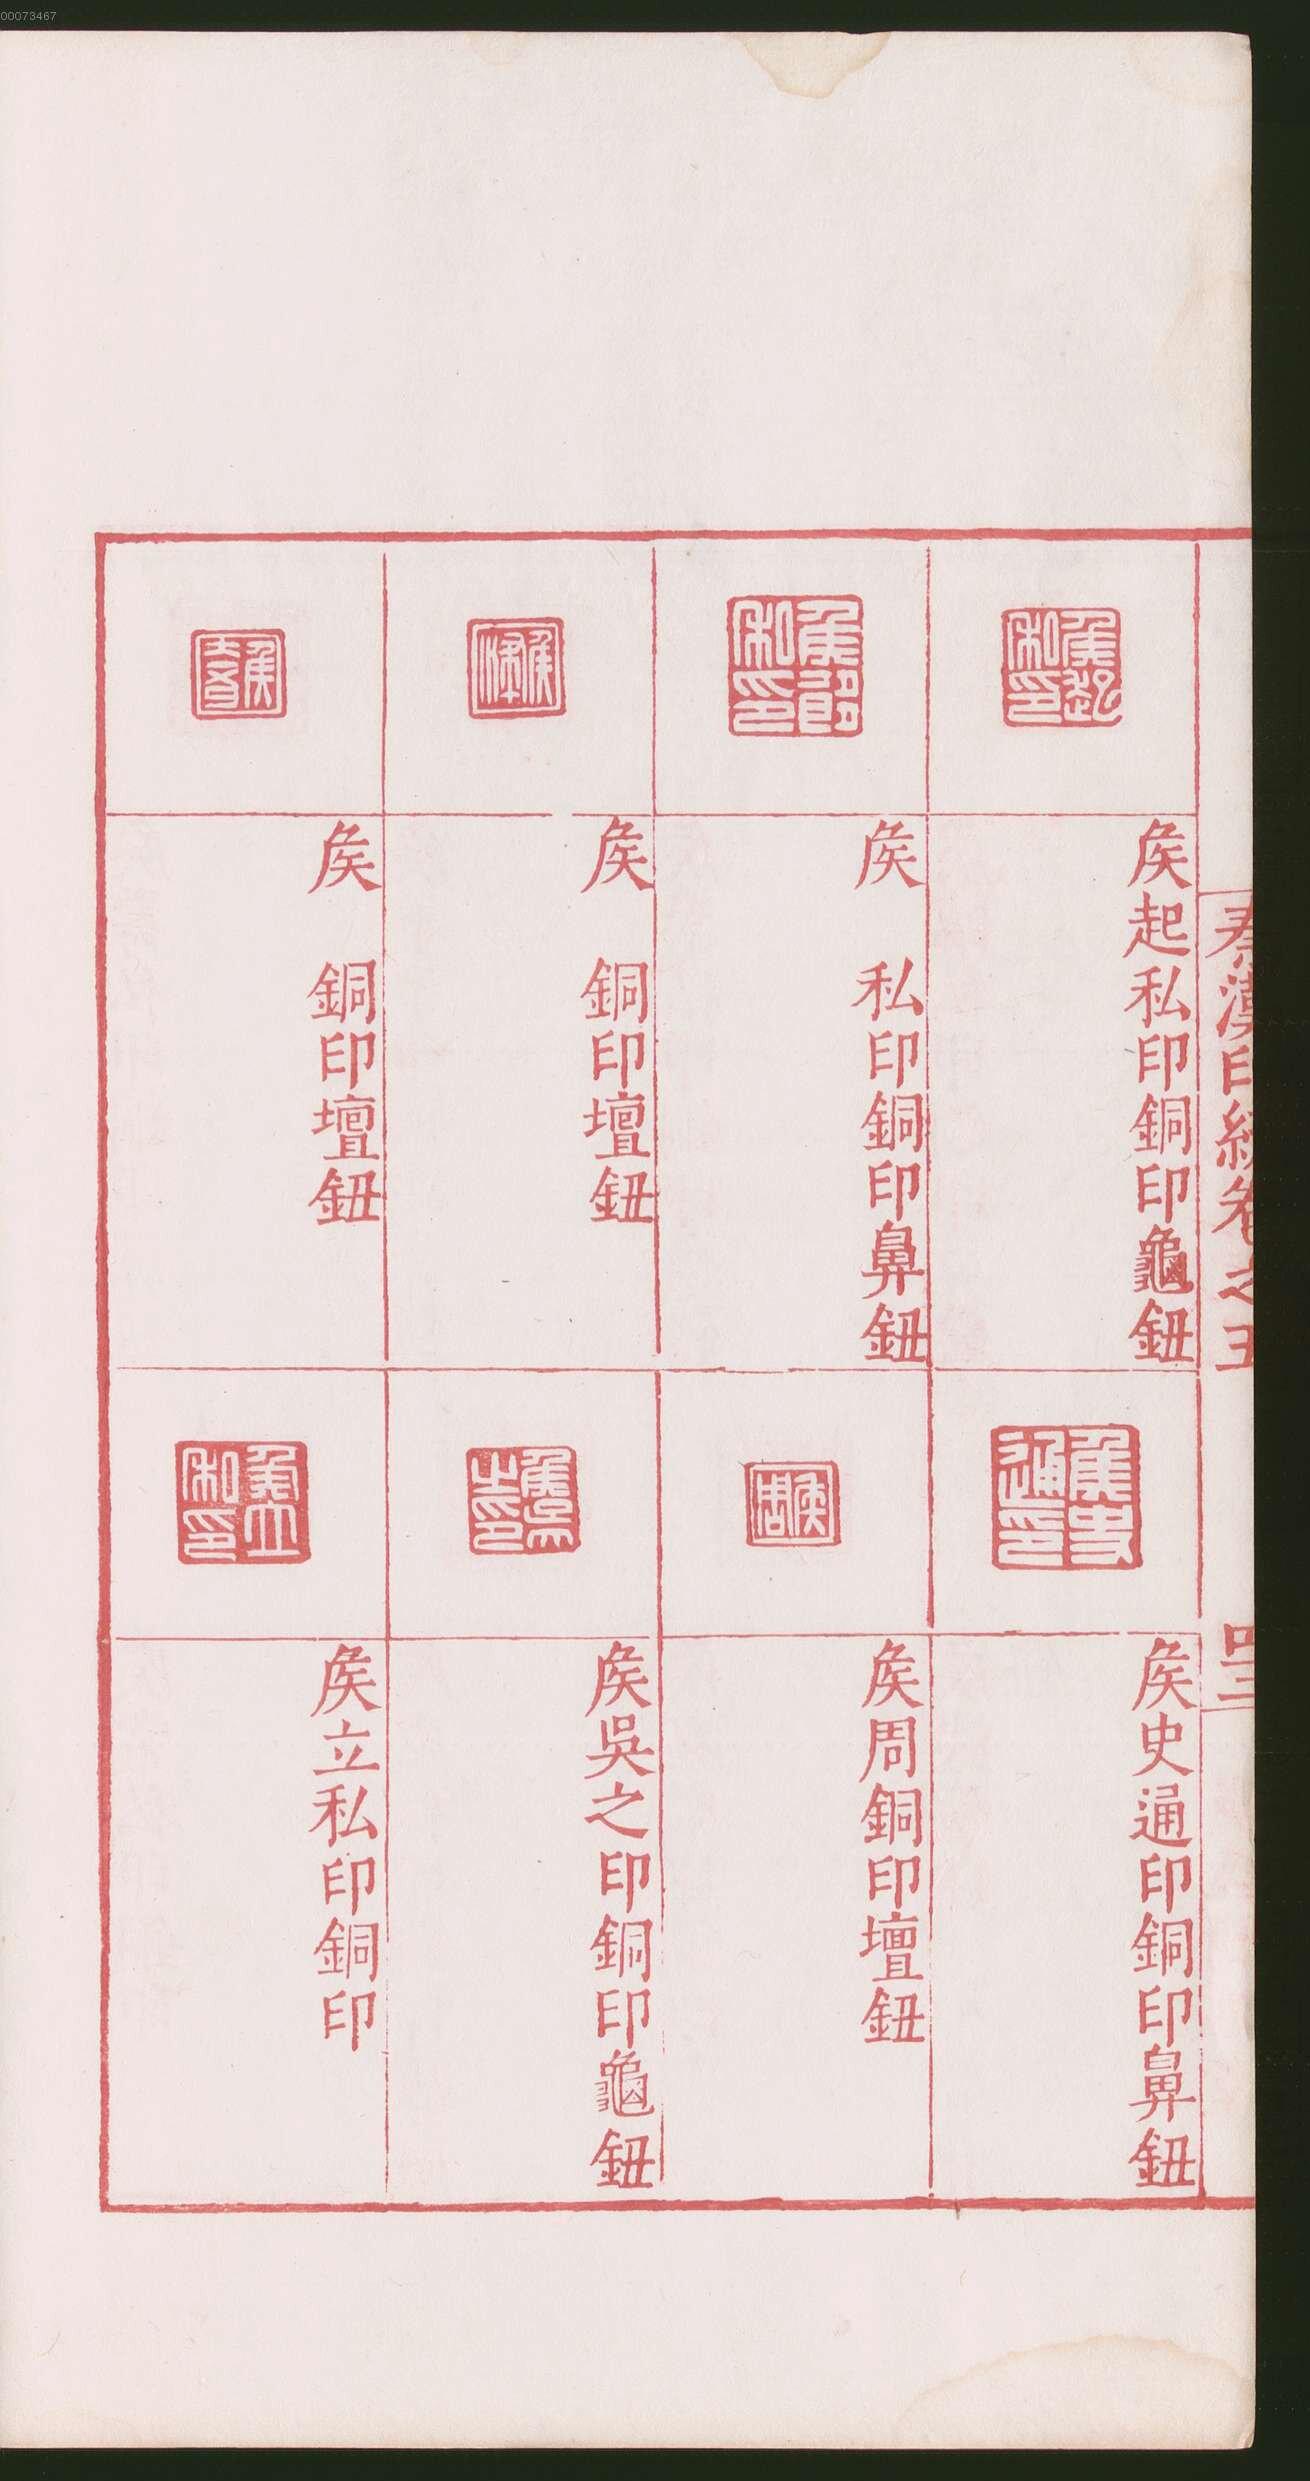 00073467
秦漢印統卷之五
四三
矦起私印銅印龜鈕
矦 私印銅印鼻鈕
矦 銅印壇鈕
矦 銅印壇鈕
矦史通印銅印鼻鈕
矦周銅印壇鈕
矦吳之印銅印龜鈕
矦立私印銅印